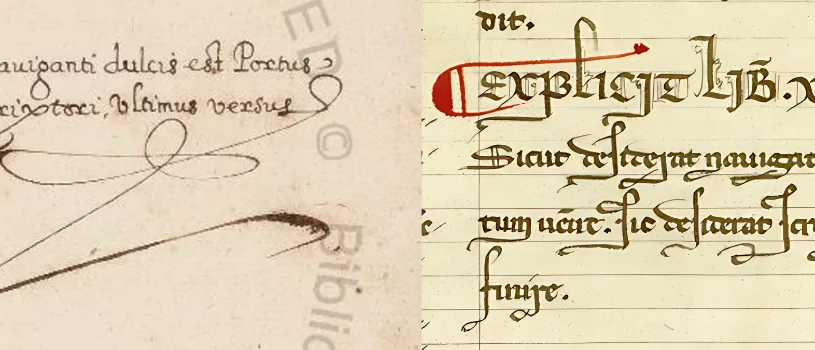 auiganti dulcis est Portus
rixtori, Vltimus versus
dit.
Explicit lib̃. x
Sicut desiderat nauigat
tum uenire. Sic desiderat scr
finire.